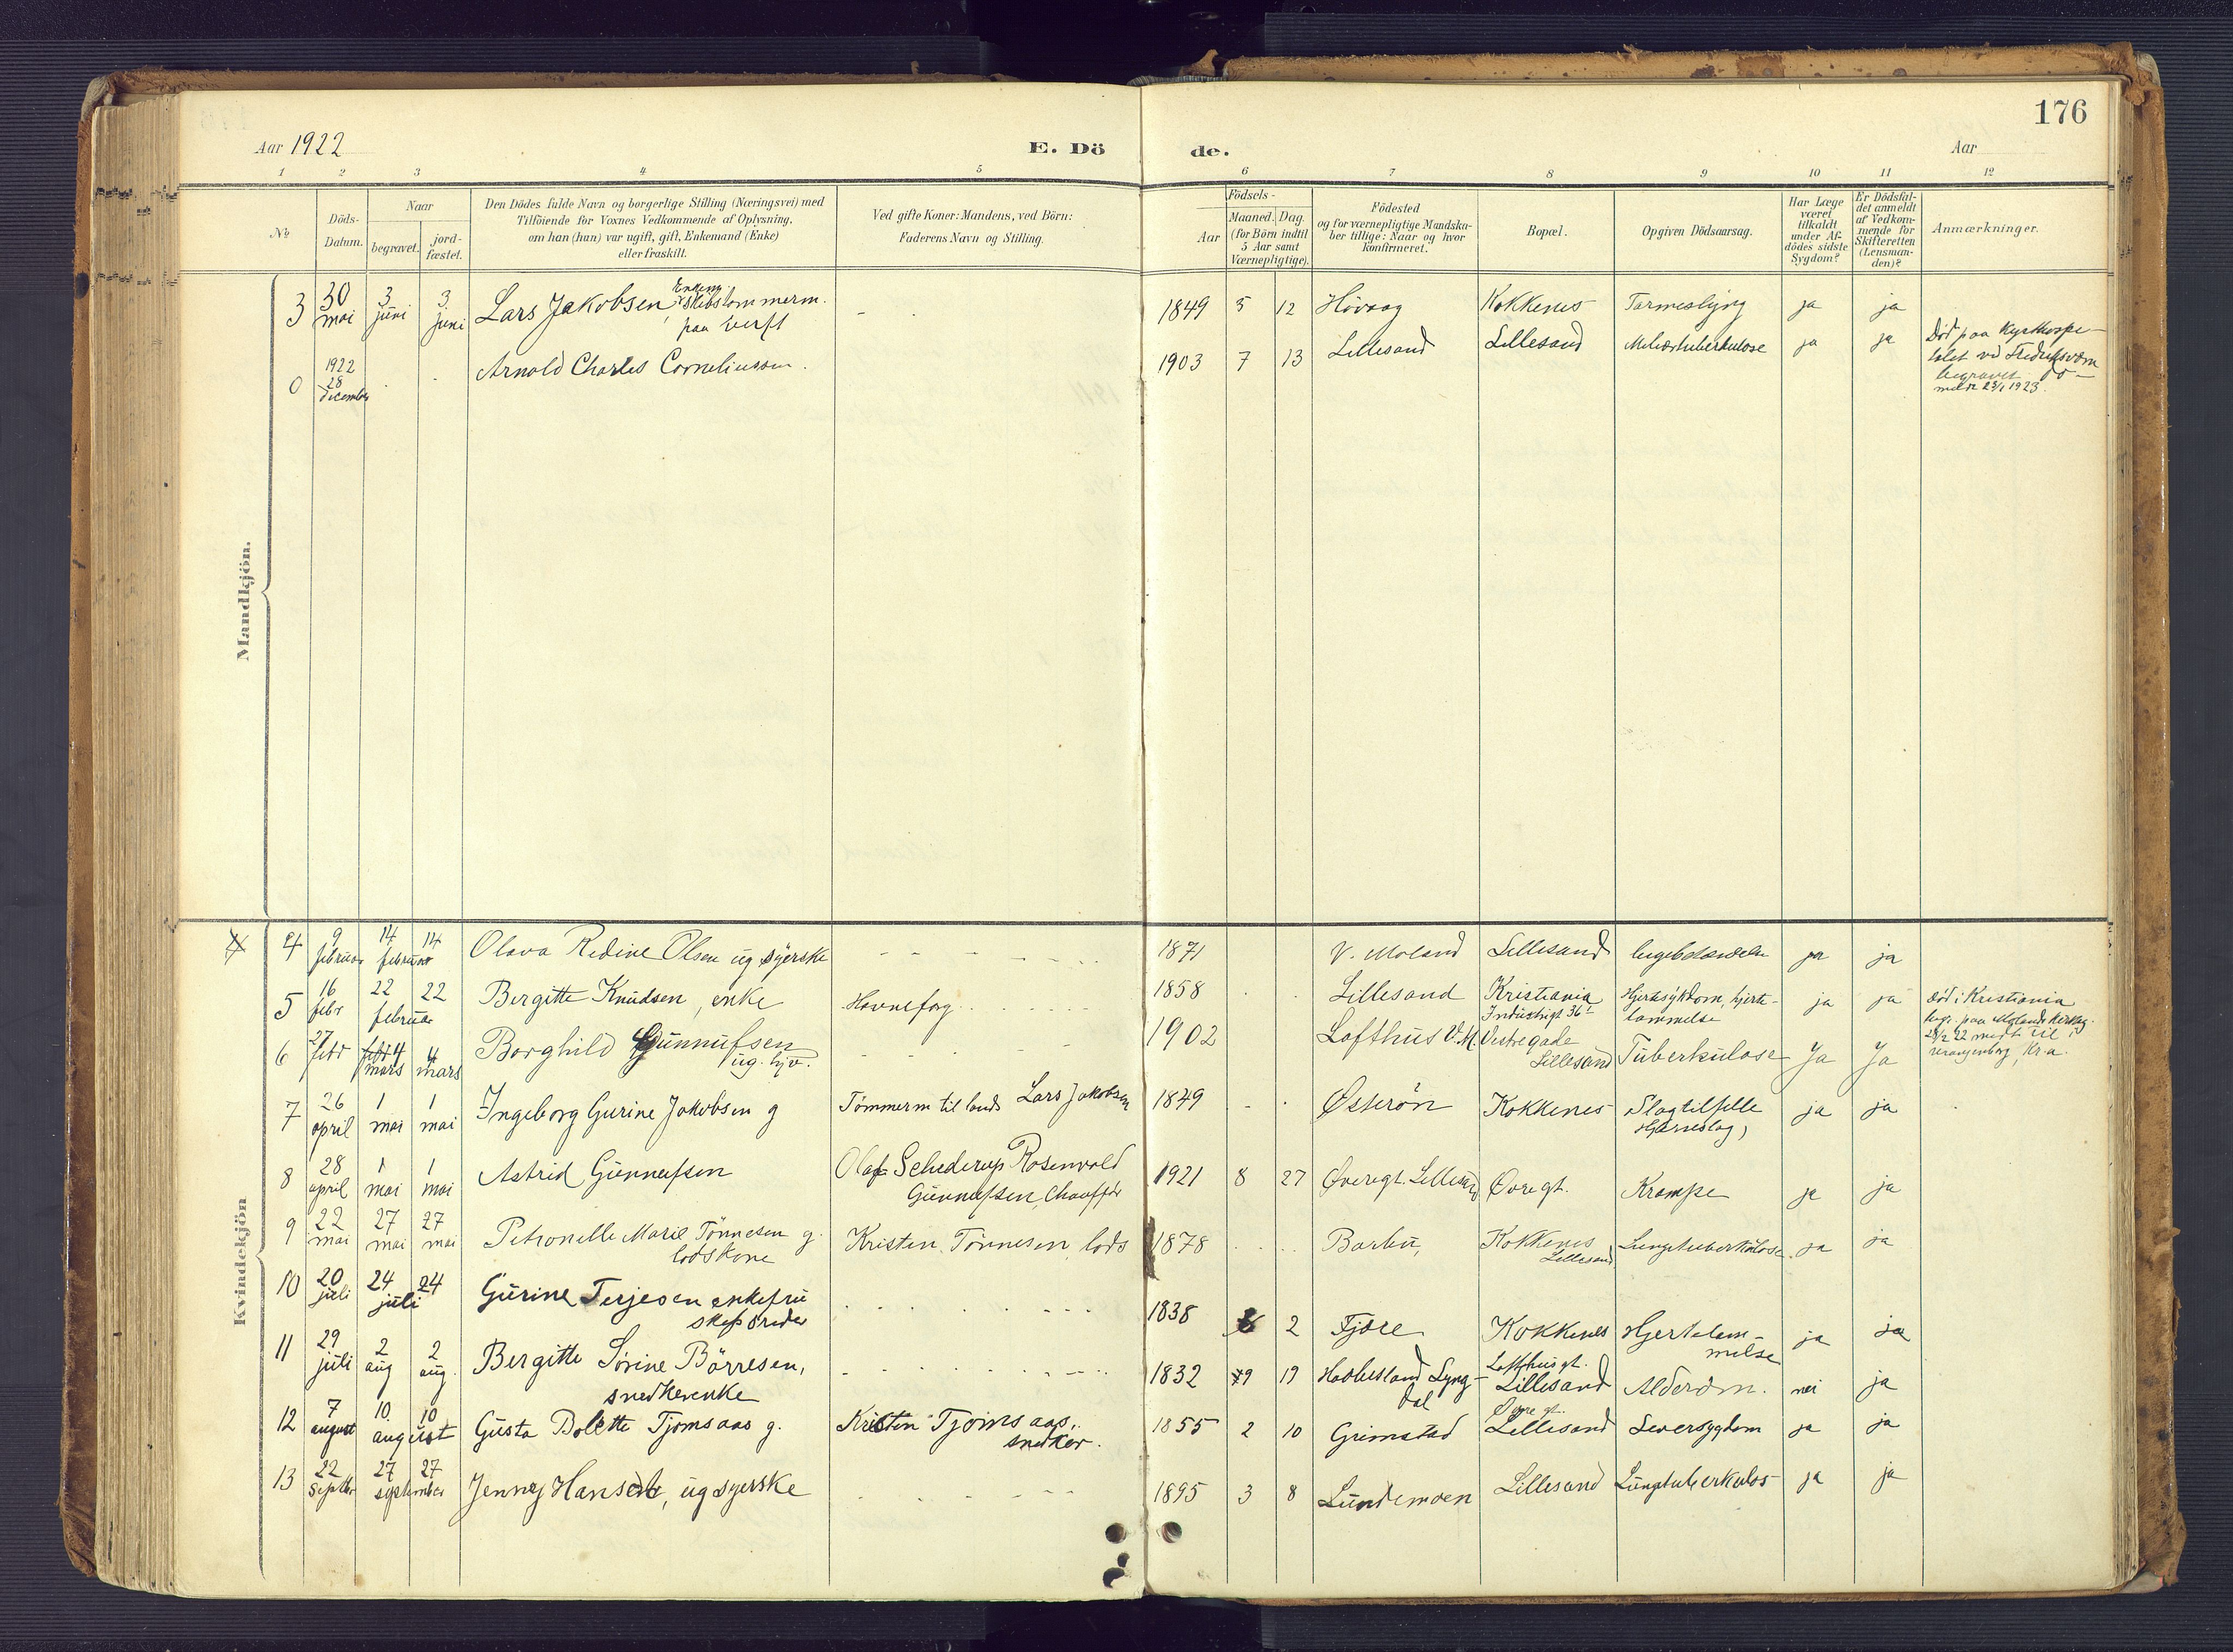 176
Aar 1922
E. Dö
de.
Aar
1 2 3 4 5 6 7 8 9 10 11 12
No
Döds-
Datum.
Naar
begravet.
jord-
fæstet.
Den Dödes fulde Navn og borgerlige Stilling (Næringsvei) med
Tilföiende for Voxnes Vedkommende af Oplysning,
om han (hun) var ugift, gift, Enkemand (Enke)
eller fraskilt.
Ved gifte Koner: Mandens, ved Börn:
Faderens Navn og Stilling.
Födsels-
Aar
Maaned.
Dag.
(for Börn indtil
5 Aar samt
Værnepligtige).
Födested
og for værnepligtige Mandska-
ber tillige: Naar og hvor
konfirmeret.
Bopæl.
Opgiven Dödsaarsag.
Har Læge
været
tilkaldt
under Af-
dödes sidste
Sygdom?
Er Dödsfal-
det anmeldt
af Vedkom-
mende for
Skifteretten
(Lensman-
den)?
Anmærkninger.
Mandkjön.
3 30 mai 3 juni 3 juni Lars Jakobsen, Enkem. Skibstømmerm. paa Verft - 1849 5 12 Høvaag Kokkenes Tarmeslyng ja ja
0 1922 28 december Arnold Charles Corneliussen. 1903 7 13 Lillesand Lillesand Miliærtuberkulose ja ja
Død paa Kysthospi-
talet ved Fredriksværn
begravet do-
melde 23/1 1923.
Kvindekjön
4 9 februar 14 14 februar Olava Redine Olsen ug. syerske 1871 V. Moland Lillesand ja ja
5 16 febr 22 22 februar Bergitte Knudsen, enke Havnefog. 1858 Lillesand Kristiania Industrigt 36 Hjertesykdom, hjerte-
lammelse ja ja
død i Kristiania
begr. paa Molands Kirkeg.
6 27 febr 4 mars 4 mars Borghild Gunnufsen ug. hjv. 1902 Lofthus V.M. Vestregade Lillesand Tuberkulose Ja Ja
7 26 april 1 mai 1 mai Ingeborg Gurine Jakobsen g Tømmerm til lands Lars Jakobsen 1849 Østerøn Kokkenes Slagtilfelle
Hjerneslag, ja ja
8 28 april 1 mai 1 mai Astrid Gunnufsen Olaf Schderup Rosenvold
Gunnufsen, Chauffør 1921 8 27 Øvregt. Lillesand Øvregt. Krampe ja ja
9 22 mai 27 mai 27 mai Petronelle Marie Tønnesen g.
lodskone Kristen Tønnesen, lods 1878 Barbu, Kokkenes
Lillesand Lungetuberkulose ja ja
10 20 juli 24 24 juli Gurine Terjesen enkefru
skipsreder 1838 8 2 Fjære Kokkenes Hjertelam-
melse ja ja
11 29 juli 2 aug 2 aug. Bergitte Sørine Børresen,
snedkerenke 1832 9 19 Lyng-
dal Lofthusgt.
Lillesand Alderdom. nei ja
12 7 august 10. 10 august Gusta Bolette Tjomsaas g. Kristen Tjomsaas,
snedker. 1855 2 10 Grimstad Øvre gt.
Lillesand Leversygdom ja ja
13 22 Septbr 27 27 september Jenny Hansen, ug syerske 1895 3 8 Lundemoen Lillesand Lungetuberkulos ja ja